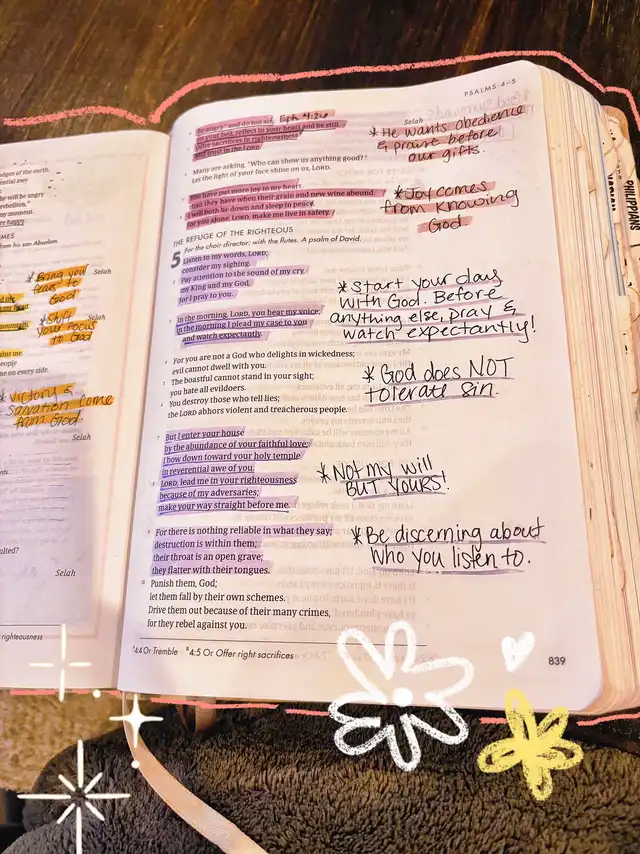 PSALMS 4–5
Be angry and do not sin; Eph 4:26
on your bed, reflect in your heart and be still. Selah
Offer sacrifices in righteousness
and trust in the LORD.
* He wants obedience
& praise before
our gifts.
Many are asking, "Who can show us anything good?"
Let the light of your face shine on us, LORD.
You have put more joy in my heart
than they have when their grain and new wine abound.
I will both lie down and sleep in peace,
for you alone, LORD, make me live in safety.
* Joy comes
from knowing
God.
THE REFUGE OF THE RIGHTEOUS
For the choir director: with the flutes. A psalm of David.
5 Listen to my words, LORD;
consider my sighing.
Pay attention to the sound of my cry,
my King and my God,
for I pray to you.
In the morning, LORD, you hear my voice;
in the morning I plead my case to you
and watch expectantly.
* Start your day
with God. Before
anything else, pray &
watch expectantly!
For you are not a God who delights in wickedness;
evil cannot dwell with you.
The boastful cannot stand in your sight;
you hate all evildoers.
You destroy those who tell lies;
the LORD abhors violent and treacherous people.
* God does NOT
tolerate sin.
7 But I enter your house
by the abundance of your faithful love;
I bow down toward your holy temple
in reverential awe of you.
8 LORD, lead me in your righteousness
because of my adversaries;
make your way straight before me.
* Not my will
BUT YOURS!
9 For there is nothing reliable in what they say;
destruction is within them;
their throat is an open grave;
they flatter with their tongues.
* Be discerning about
who you listen to.
10 Punish them, God;
let them fall by their own schemes.
Drive them out because of their many crimes,
for they rebel against you.
4:4 Or Tremble 4:5 Or Offer right sacrifices
839
of the earth.
awe
will be angry
rebellion,
moment.
are happy
from his son Absalom.
Selah
* Bring your
fears to
God
Selah
* Shift
your focus
to God
me on every side.
* Victory &
Salvation come
from God.
Selah
Selah
righteousness
PHILIPPIANS